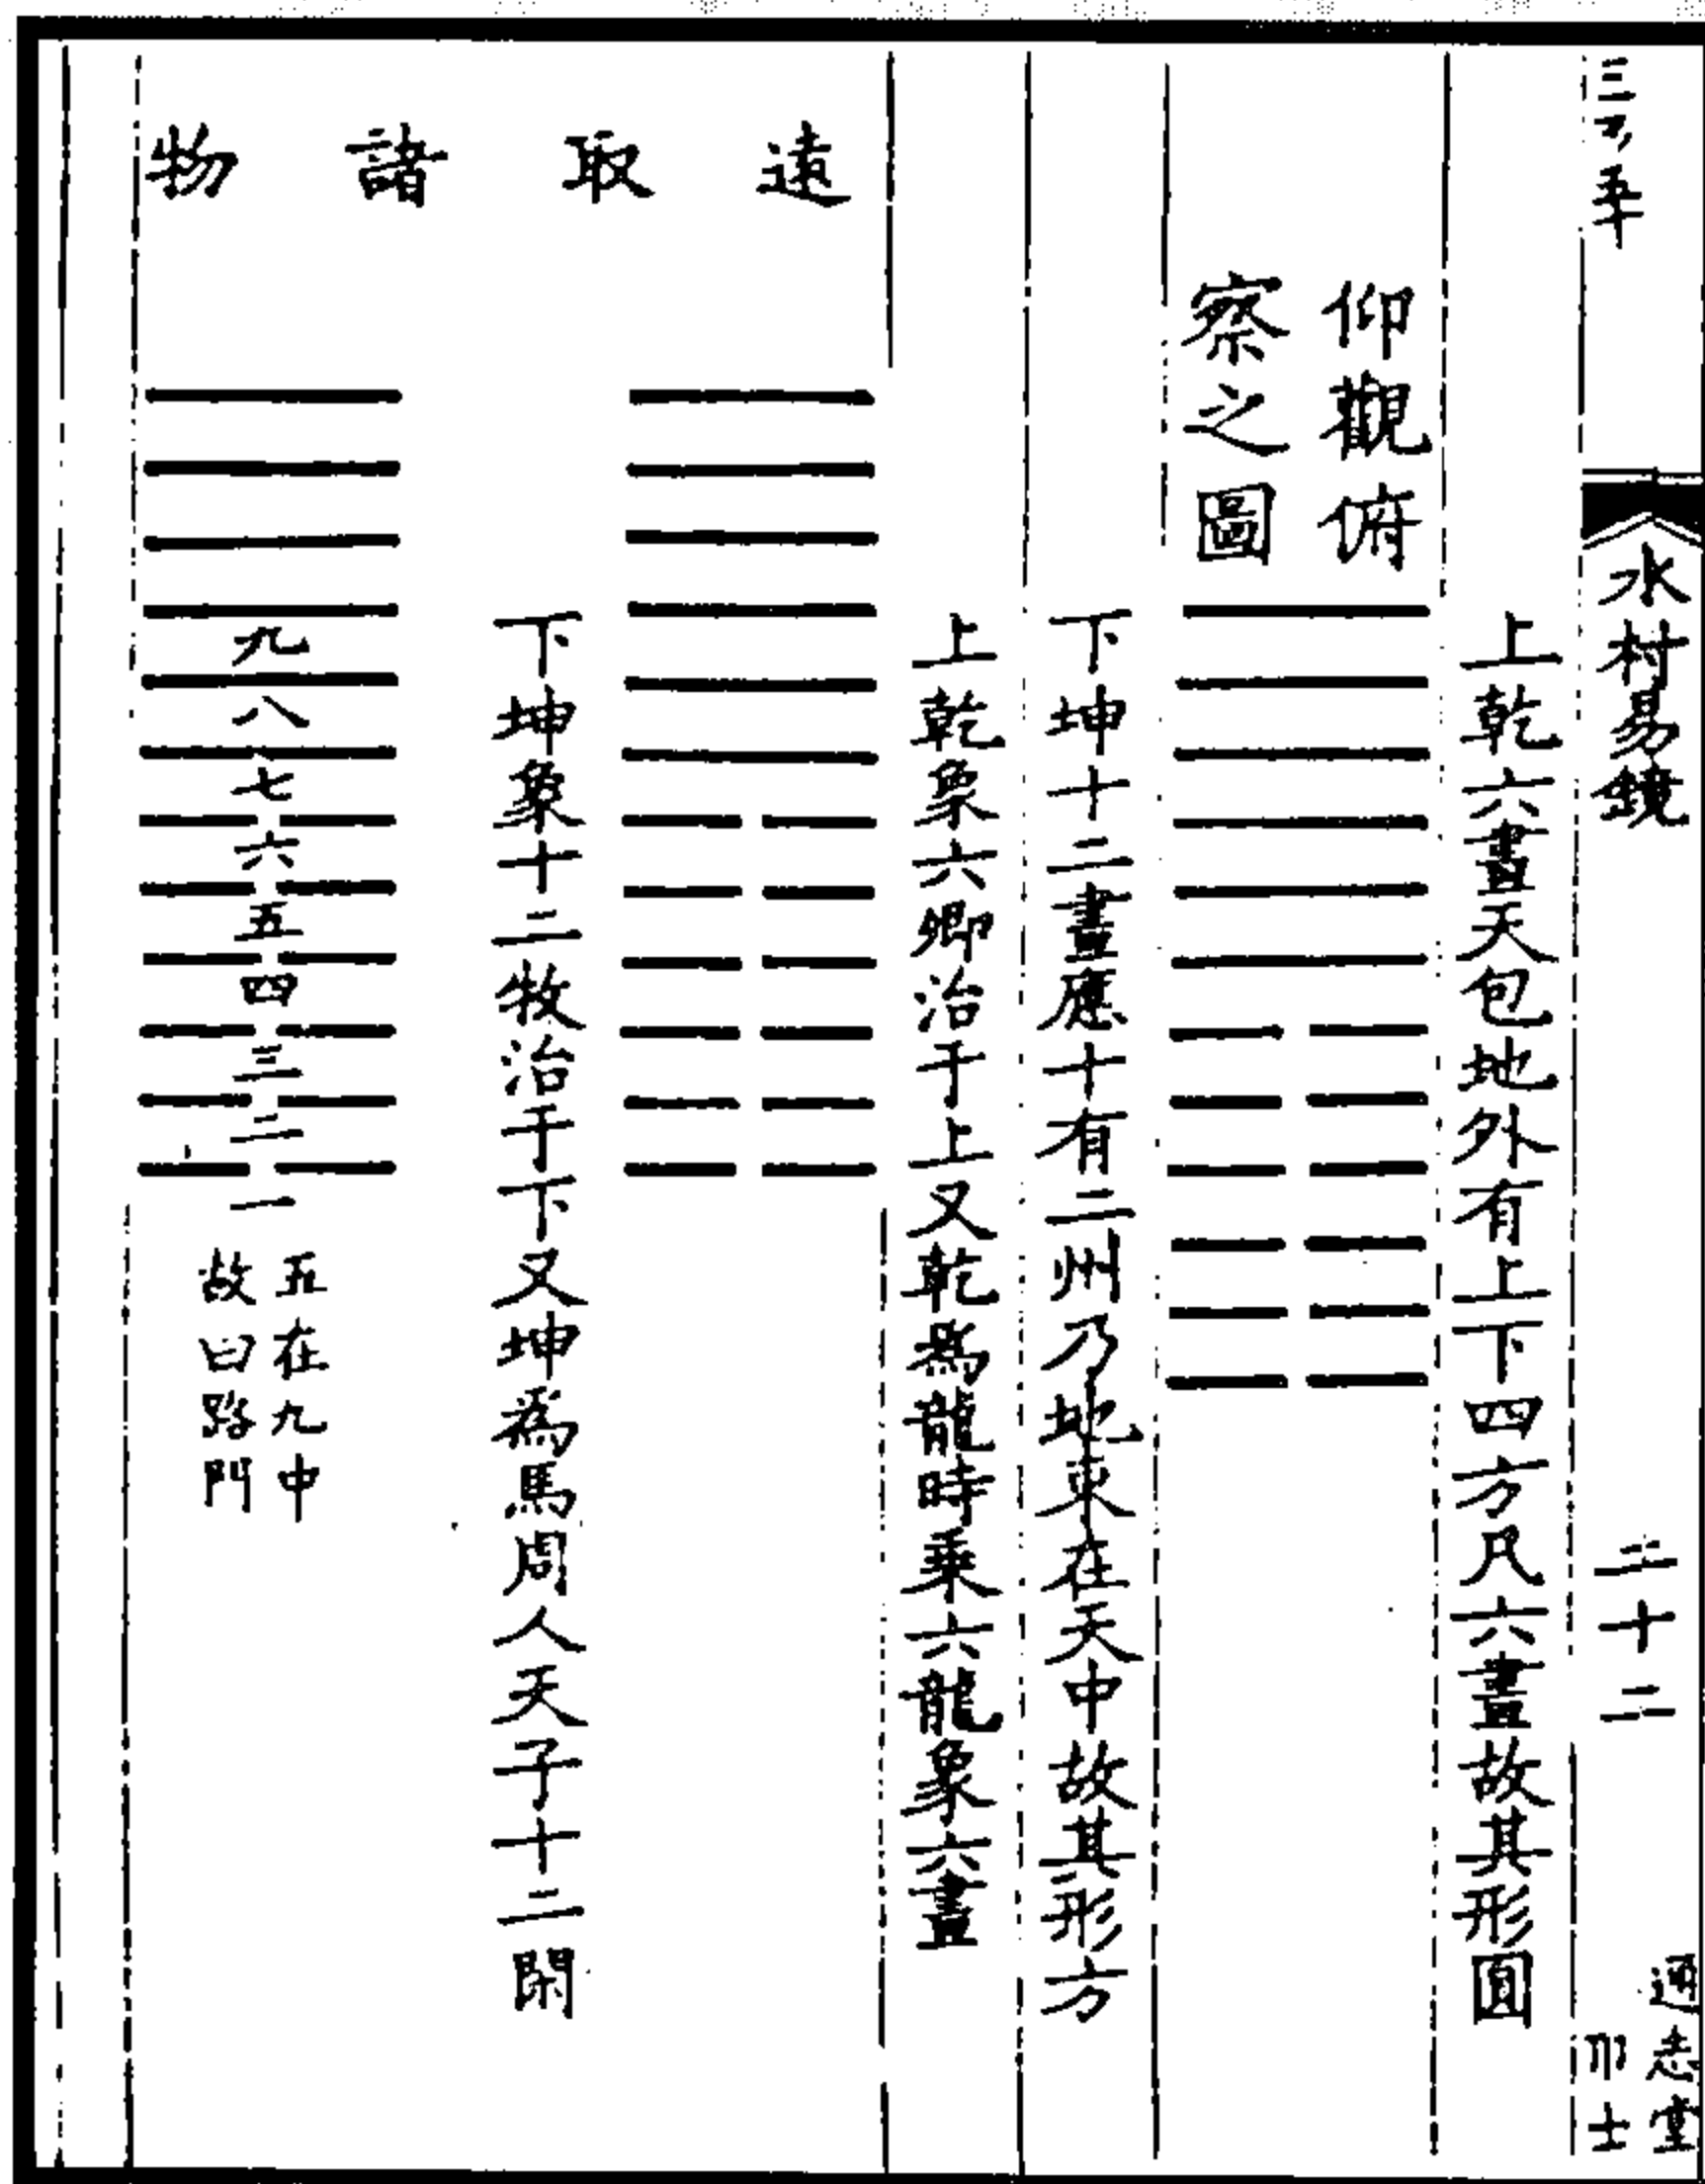 水村易鏡
三十二
通志堂
上乾六畫天包地外有上下四方凡六畫故其形圓
仰觀俯
察之圖
下坤十二畫應十有二州乃地東在天中故其形方
上乾象六卿治于上又乾為龍時乘六龍象六畫
遠取諸物
下坤象十二牧治于下又坤為馬周人天子十二閑
九
八
七
六
五
四
三
二
一
五在九中
故曰路門